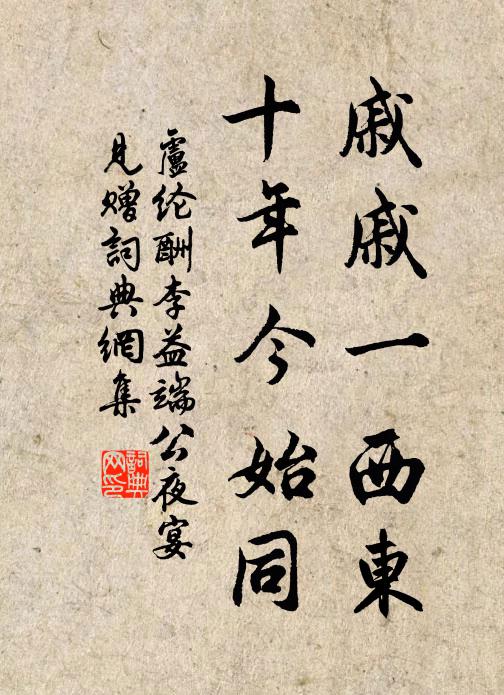 戚戚一西東
十年今始同
盧纶酬李益端公夜宴
見赠詞典網集
詞典
网印